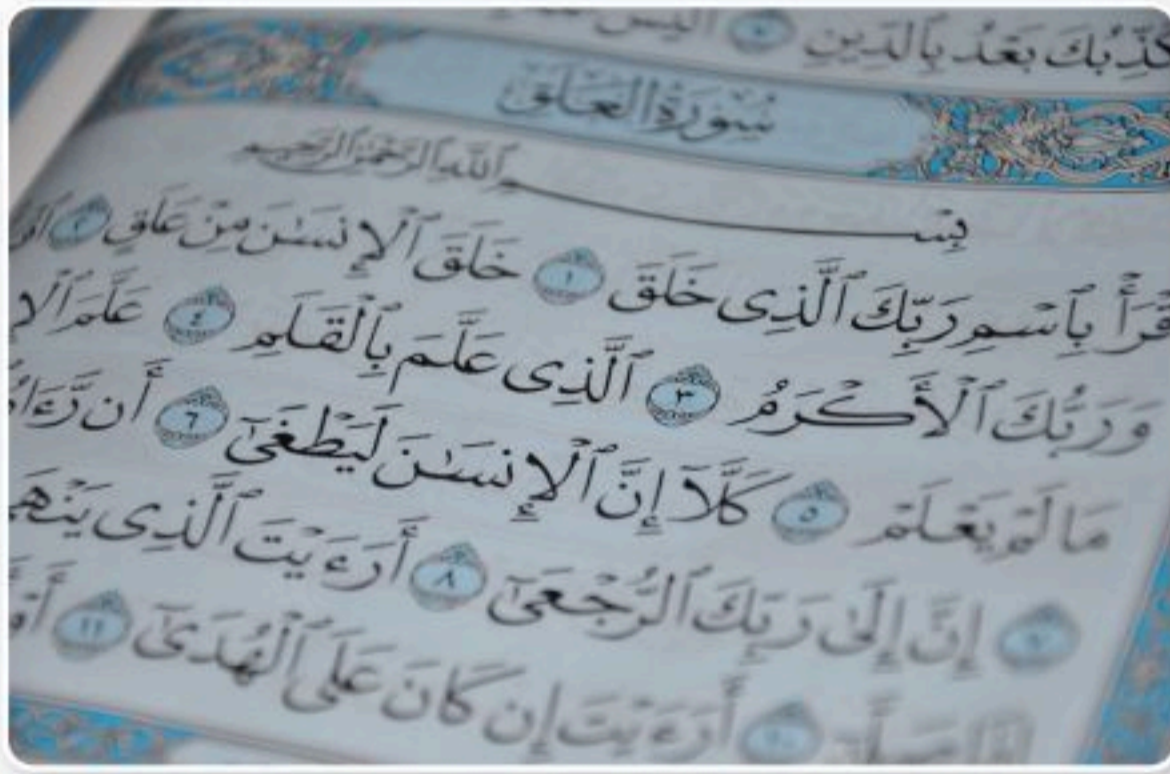 يُكَذِّبُكَ بَعْدُ بِالدِّينِ ٧ أَلَيْسَ
سُورَةُ العَلَقِ
بِسْمِ اللَّهِ الرَّحْمَٰنِ الرَّحِيمِ
ٱقْرَأْ بِٱسْمِ رَبِّكَ ٱلَّذِى خَلَقَ ١ خَلَقَ ٱلْإِنسَٰنَ مِنْ عَلَقٍ ٢
وَرَبُّكَ ٱلْأَكْرَمُ ٣ ٱلَّذِى عَلَّمَ بِٱلْقَلَمِ ٤ عَلَّمَ
مَا لَمْ يَعْلَمْ ٥ كَلَّآ إِنَّ ٱلْإِنسَٰنَ لَيَطْغَىٰٓ ٦ أَن رَّءَاهُ
٧ إِنَّ إِلَىٰ رَبِّكَ ٱلرُّجْعَىٰٓ ٨ أَرَءَيْتَ ٱلَّذِى يَنْهَىٰ
إِذَا صَلَّىٰٓ ١٠ أَرَءَيْتَ إِن كَانَ عَلَى ٱلْهُدَىٰٓ ١١